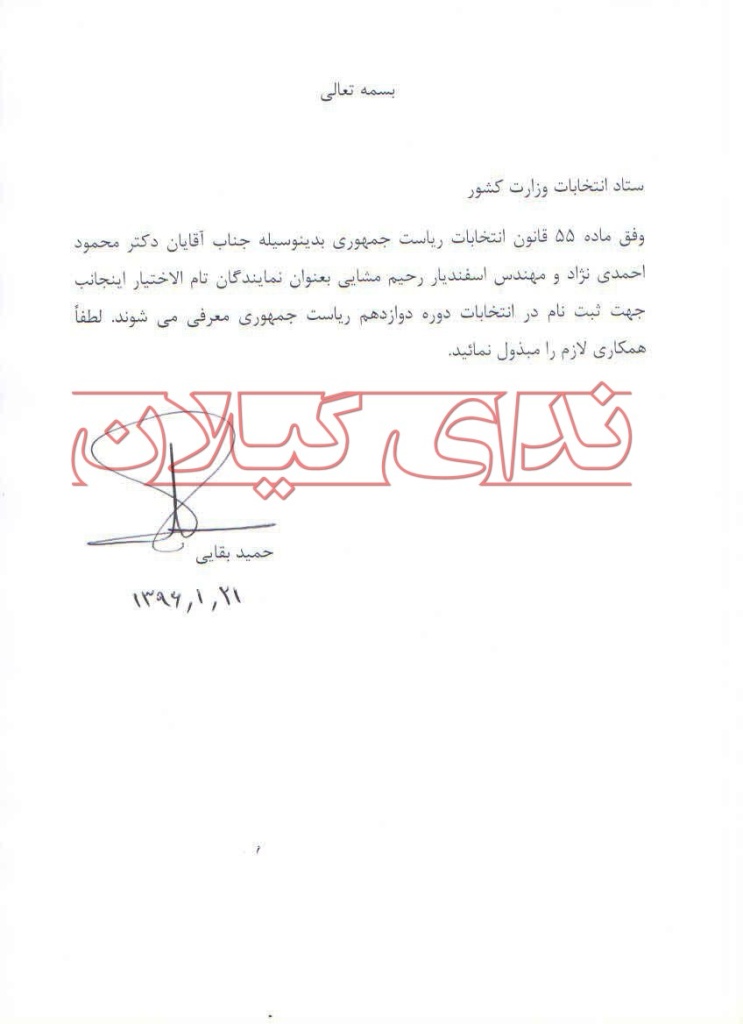 بسمه تعالی
ستاد انتخابات وزارت کشور
وفق ماده ۵۵ قانون انتخابات ریاست جمهوری بدینوسیله جناب آقایان دکتر محمود
احمدی نژاد و مهندس اسفندیار رحیم مشایی بعنوان نمایندگان تام الاختیار اینجانب
جهت ثبت نام در انتخابات دوره دوازدهم ریاست جمهوری معرفی می شوند. لطفاً
همکاری لازم را مبذول نمائید.
ندای گیلان
حمید بقایی
۱۳۹۶٫۱٫۲۱